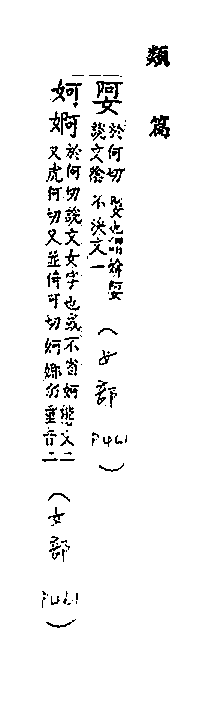 類篇
娿 於何切說文陰娿也謂媕娿不決文一 (女部 P461)
妸婀 於何切說文女字也或不省妸又虎何切又並倚可切妸娜態文二重音二 (女部 P461)